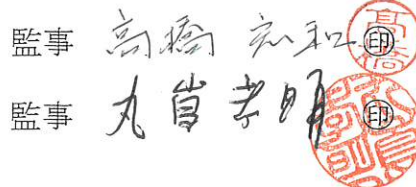 監事 高橋 和 ㊞
監事 丸 孝明 ㊞